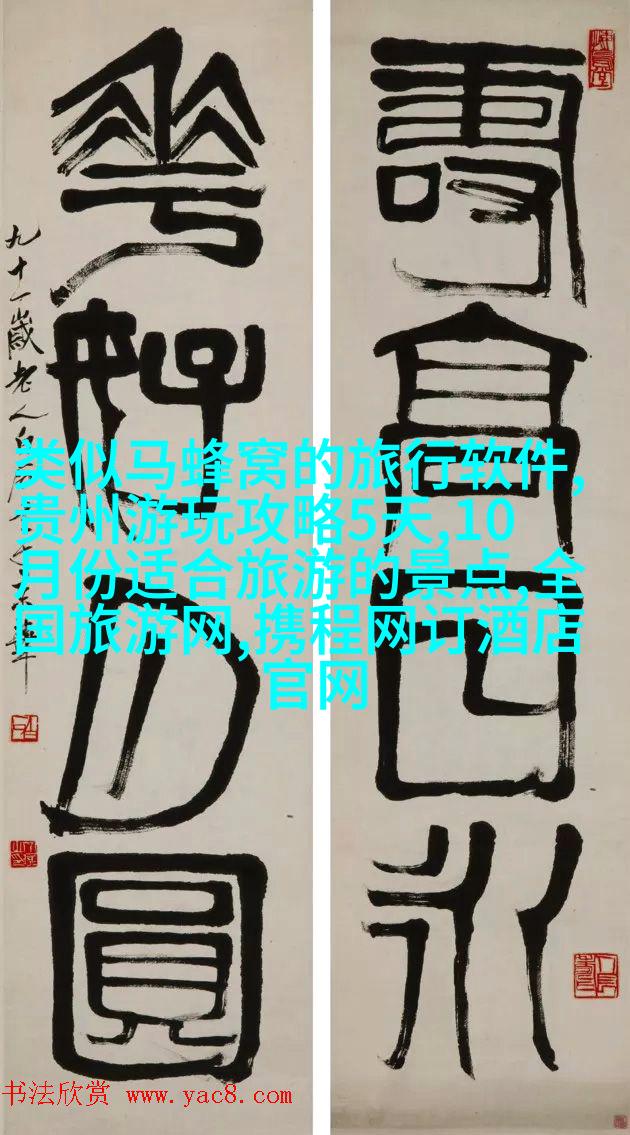 壽高日永
華好月圓
九十一歲老人白石
类似马蜂窝的旅行软件,
贵州游玩攻略5天,10
月份适合旅游的景点,全
国旅游网,携程网订酒店
官网
书法欣赏 www.yac8.com